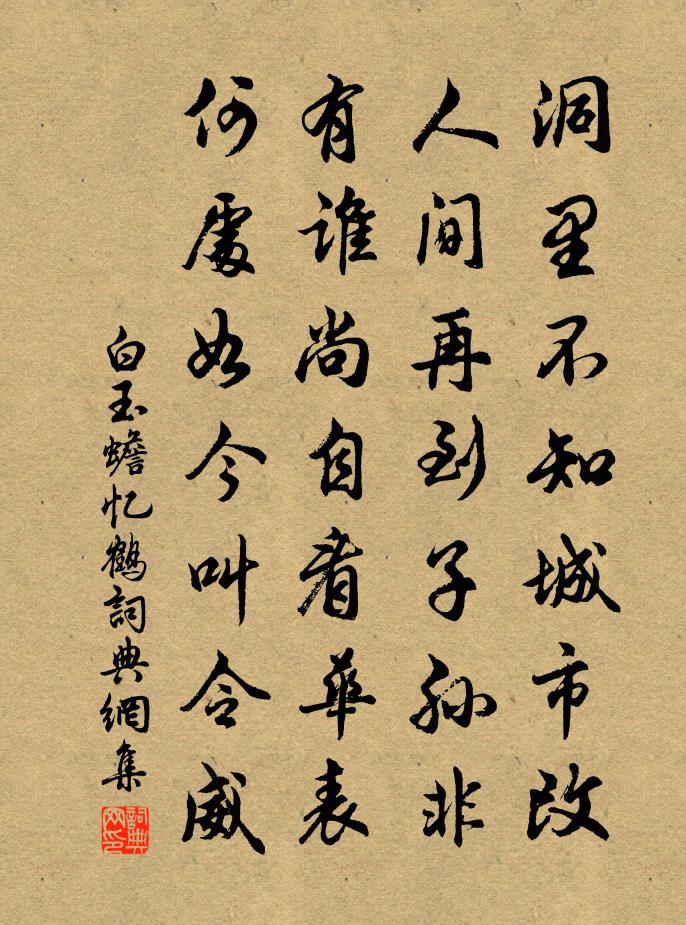 洞里不知城市改
人间再到子孙非
有谁尚自看華表
何處如今叫令威
白玉蟾忆鶴詞典網集
詞典网印